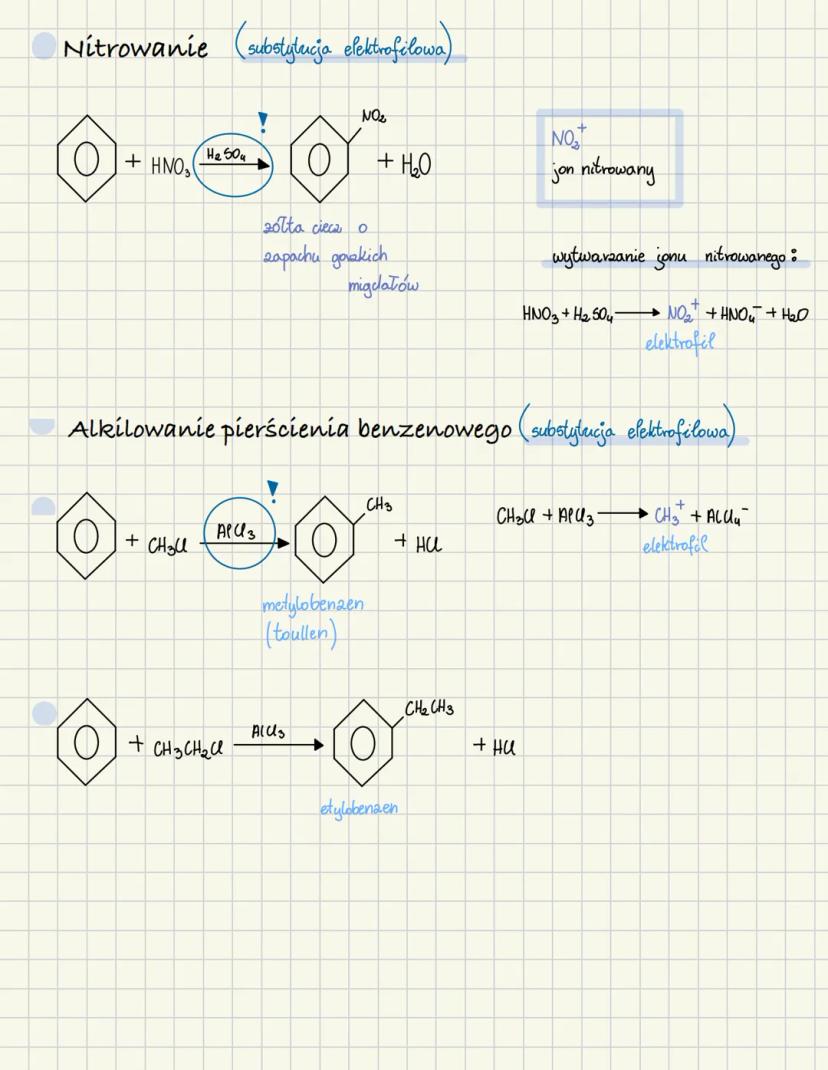 Nitrowanie (substytucja elektrofilowa)
NO₂
+ HNO₃ H₂SO₄ ! + H₂O
żółta ciecz o
zapachu gorzkich
migdałów
NO₂⁺
jon nitrowany
wytwarzanie jonu nitrowanego:
HNO₃ + H₂SO₄ ⟶ NO₂⁺ + HNO₄⁻ + H₂O
elektrofil
Alkilowanie pierścienia benzenowego (substytucja elektrofilowa)
CH₃
+ CH₃Cl AlCl₃ ! + HCl
metylobenzen
(toullen)
CH₃Cl + AlCl₃ ⟶ CH₃⁺ + AlCl₄⁻
elektrofil
CH₂CH₃
+ CH₃CH₂Cl AlCl₃ + HCl
etylobenzen